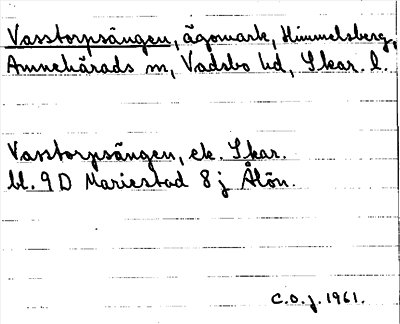 Vasstorpsängen, ägomark, Himmelsberg,
Amnehärads sn, Vadsbo hd, Skar. l.
Vasstorpsängen, ek. Skar.
bl. 9D Mariestad 8j Ålön.
C.O.J. 1961.